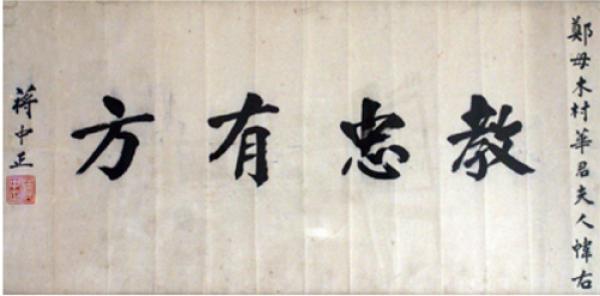 鄭母木村華君夫人幃右
教忠有方
蔣中正